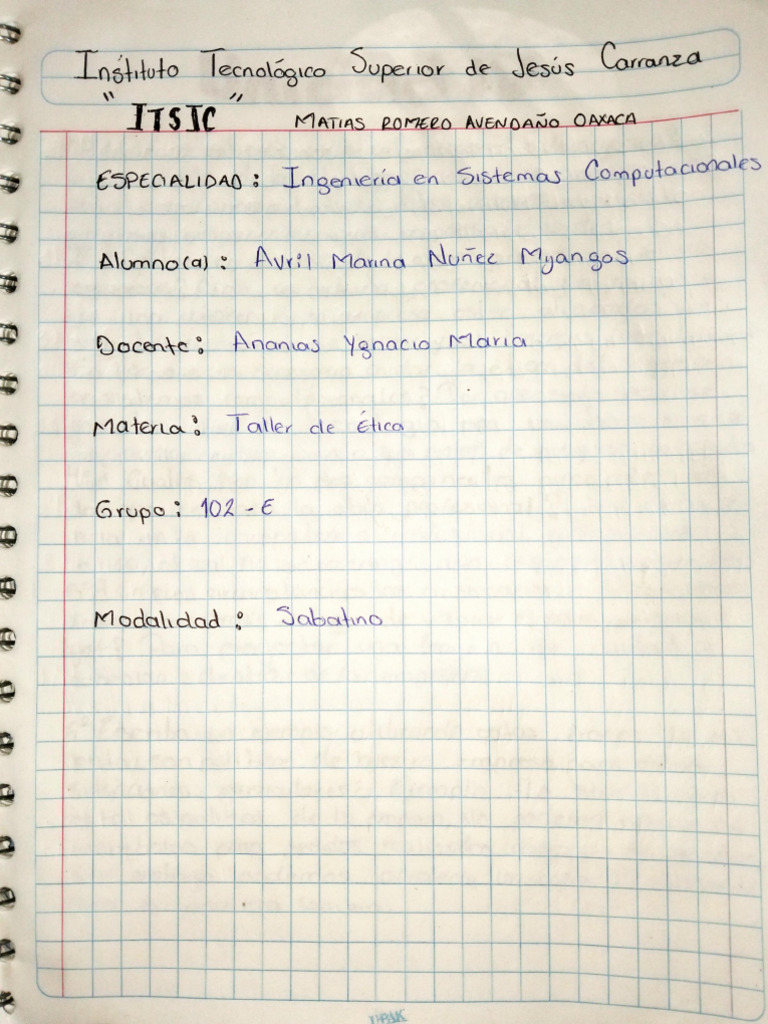 Instituto Tecnológico Superior de Jesús Carranza
"ITSJC" MATIAS ROMERO AVENDAÑO OAXACA
ESPECIALIDAD: Ingeniería en Sistemas Computacionales
Alumno(a): Avril Marina Nuñez Myangos
Docente: Ananias Ygnacio Maria
Materia: Taller de Ética
Grupo: 102-E
Modalidad: Sabatino